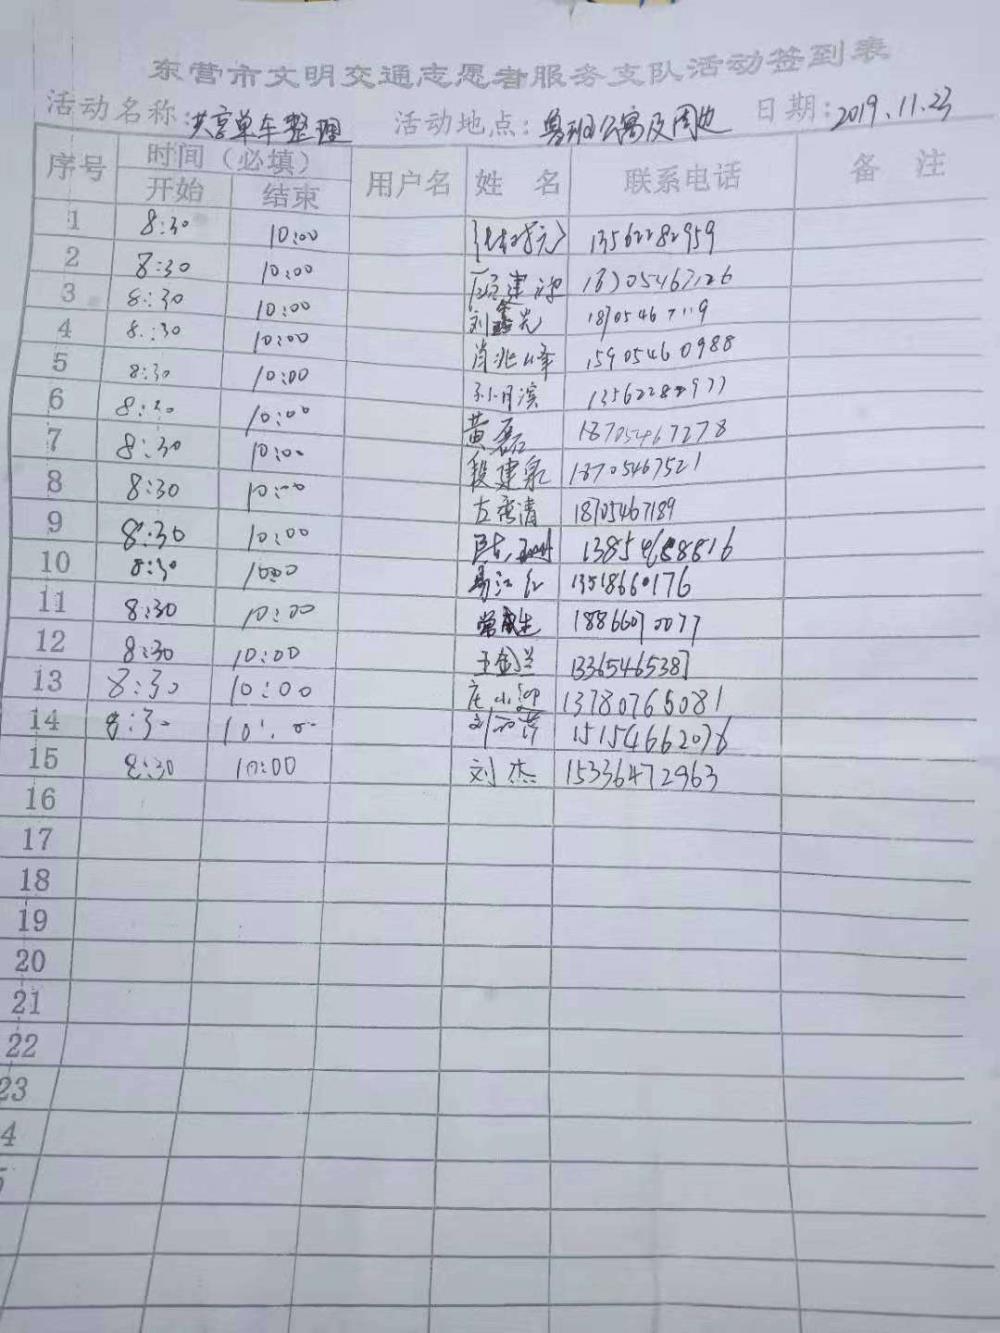 东营市文明交通志愿者服务支队活动签到表
活动名称:共享单车整理 活动地点:鲁班公寓及周边 日期:2019.11.23
序号 时间(必填) 用户名 姓名 联系电话 备注
开始 结束
1 8:30 10:00 13562282959
2 8:30 10:00 18705467126
3 8:30 10:00 刘鑫光 18705467119
4 8:30 10:00 肖兆峰 15905460988
5 8:30 10:00 孙月滨 13562282977
6 8:30 10:00 黄磊 18705467278
7 8:30 10:00 段建泉 18705467521
8 8:30 10:00 18705467189
9 8:30 10:00 13854688816
10 8:30 1000 易江红 13518660176
11 8:30 10:00 18866070077
12 8:30 10:00 王金兰 13365465387
13 8:30 10:00 庄小迎 13780765081
14 8:30 10:00 15154662076
15 8:30 10:00 刘杰 15336472963
16
17
18
19
20
21
22
23
4